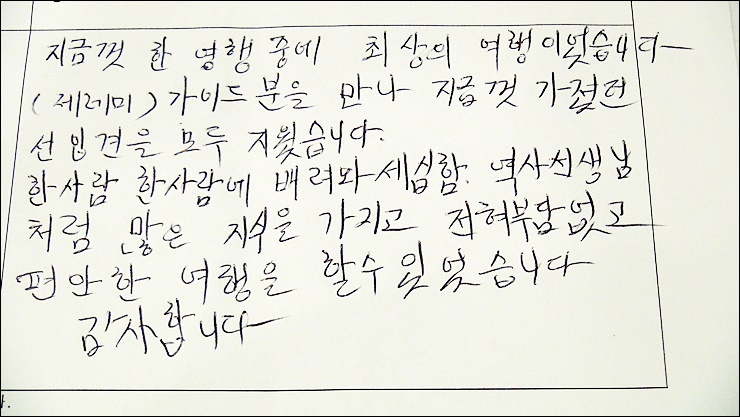 지금껏 한 영행 중에 최상의 여행이엇습니다
(제레미) 가이드분을 만나 지금껏 가졌던
선입견을 모두 지웟습니다.
한사람 한사람에 배려와 세심함. 역사선생님
처럼 많은 지식을 가지고 전혀부담없고
편안한 여행을 할수 잇엇습니다
감사합니다